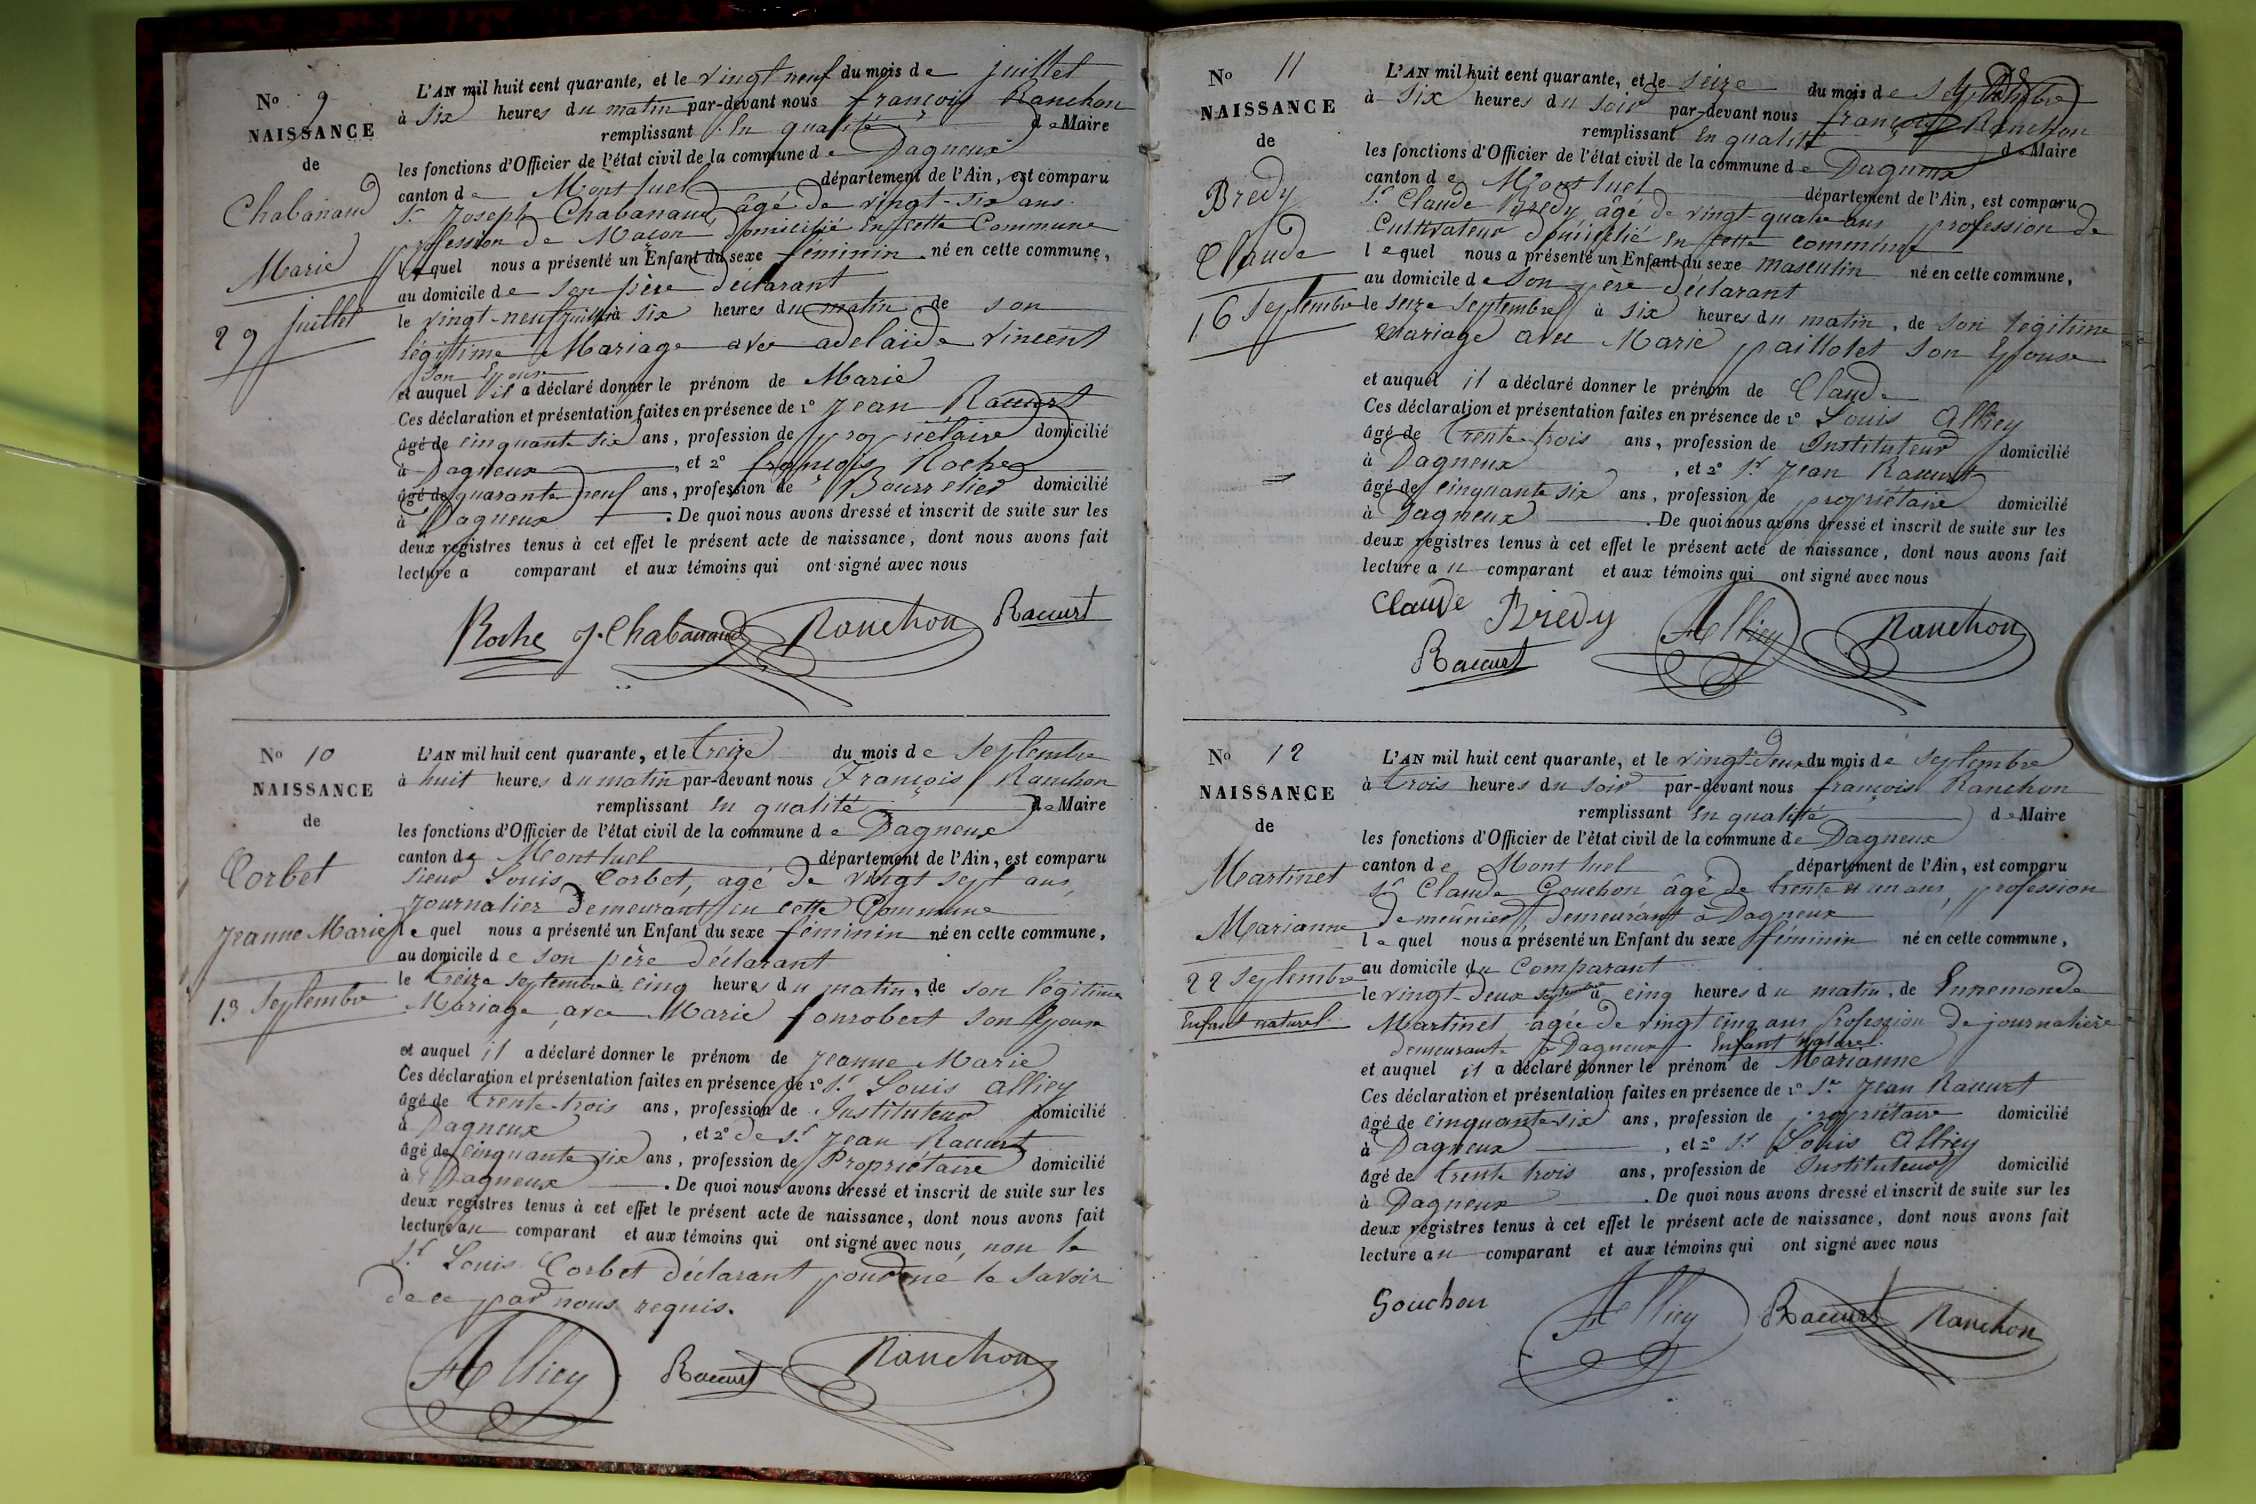 N° 9
NAISSANCE
de
Chabanaud
Marie
29 juillet
L'AN mil huit cent quarante, et le vingt neuf du mois de juillet
à six heures du matin par-devant nous françois Ranchon
remplissant En qualité de Maire
les fonctions d'Officier de l'état civil de la commune de Dagneux
canton de Montluel département de l'Ain, est comparu
Sr Joseph Chabanaud âgé de vingt-six ans
profession de Maçon domicilié En cette Commune
lequel nous a présenté un Enfant du sexe féminin né en cette commune,
au domicile de son père déclarant
le vingt-neuf juillet à six heures du matin de son
légitime Mariage avec adelaide vincent
son Epouse
et auquel il a déclaré donner le prénom de Marie
Ces déclaration et présentation faites en présence de 1° Jean Raccurt
âgé de cinquante six ans, profession de propriétaire domicilié
à Dagneux, et 2° françois Roche
âgé de quarante neuf ans, profession de Bourrelier domicilié
à Dagneux. De quoi nous avons dressé et inscrit de suite sur les
deux registres tenus à cet effet le présent acte de naissance, dont nous avons fait
lecture a comparant et aux témoins qui ont signé avec nous
Roche J. Chabanaud Ranchon Raccurt
N° 10
NAISSANCE
de
Corbet
Jeanne Marie
13 Septembre
L'AN mil huit cent quarante, et le treize du mois de septembre
à huit heures du matin par-devant nous François Ranchon
remplissant En qualité de Maire
les fonctions d'Officier de l'état civil de la commune de Dagneux
canton de Montluel département de l'Ain, est comparu
sieur Louis Corbet, agé de vingt sept ans,
Journalier demeurant en cette Commune
lequel nous a présenté un Enfant du sexe féminin né en cette commune,
au domicile de son père déclarant
le treize septembre à cinq heures du matin, de son légitime
Mariage avec Marie fonrobert son Epouse
et auquel il a déclaré donner le prénom de Jeanne Marie
Ces déclaration et présentation faites en présence de 1° Sr Louis Alliey
âgé de trente-trois ans, profession de Instituteur domicilié
à Dagneux, et 2° de Sr Jean Raccurt
âgé de cinquante six ans, profession de Propriétaire domicilié
à Dagneux. De quoi nous avons dressé et inscrit de suite sur les
deux registres tenus à cet effet le présent acte de naissance, dont nous avons fait
lecture au comparant et aux témoins qui ont signé avec nous, non le
Sr Louis Corbet déclarant pour ne le savoir
de ce par nous requis.
Alliey Raccurt Ranchon
N° 11
NAISSANCE
de
Bredy
Claude
16 Septembre
L'AN mil huit cent quarante, et le seize du mois de septembre
à six heures du soir par-devant nous françois Ranchon
remplissant En qualité de Maire
les fonctions d'Officier de l'état civil de la commune de Dagneux
canton de Montluel département de l'Ain, est comparu
Sr Claude Bredy âgé de vingt-quatre ans profession de
Cultivateur domicilié En cette commune
lequel nous a présenté un Enfant du sexe masculin né en cette commune,
au domicile de son père déclarant
le seize septembre à six heures du matin, de son légitime
Mariage avec Marie paillolet son Epouse
et auquel il a déclaré donner le prénom de Claude
Ces déclaration et présentation faites en présence de 1° Louis Alliey
âgé de trente-trois ans, profession de Instituteur domicilié
à Dagneux, et 2° Sr Jean Raccurt
âgé de cinquante six ans, profession de propriétaire domicilié
à Dagneux. De quoi nous avons dressé et inscrit de suite sur les
deux registres tenus à cet effet le présent acte de naissance, dont nous avons fait
lecture au comparant et aux témoins qui ont signé avec nous
Claude Bredy Alliey Ranchon
Raccurt
N° 12
NAISSANCE
de
Martinet
Marianne
22 septembre
Enfant naturel
L'AN mil huit cent quarante, et le vingt deux du mois de septembre
à trois heures du soir par-devant nous françois Ranchon
remplissant En qualité de Maire
les fonctions d'Officier de l'état civil de la commune de Dagneux
canton de Montluel département de l'Ain, est comparu
Sr Claude Gouchon âgé de trente et un ans, profession
de meûnier demeurant à Dagneux
lequel nous a présenté un Enfant du sexe féminin né en cette commune,
au domicile du Comparant
le vingt-deux septembre à cinq heures du matin, de Ennemonde
Martinet agée de vingt cinq ans profession de journalière
demeurante à Dagneux Enfant naturel
et auquel il a déclaré donner le prénom de Marianne
Ces déclaration et présentation faites en présence de 1° Sr Jean Raccurt
âgé de cinquante six ans, profession de propriétaire domicilié
à Dagneux, et 2° Sr Louis Alliey
âgé de trente trois ans, profession de Instituteur domicilié
à Dagneux. De quoi nous avons dressé et inscrit de suite sur les
deux registres tenus à cet effet le présent acte de naissance, dont nous avons fait
lecture au comparant et aux témoins qui ont signé avec nous
Gouchon Alliey Raccurt Ranchon